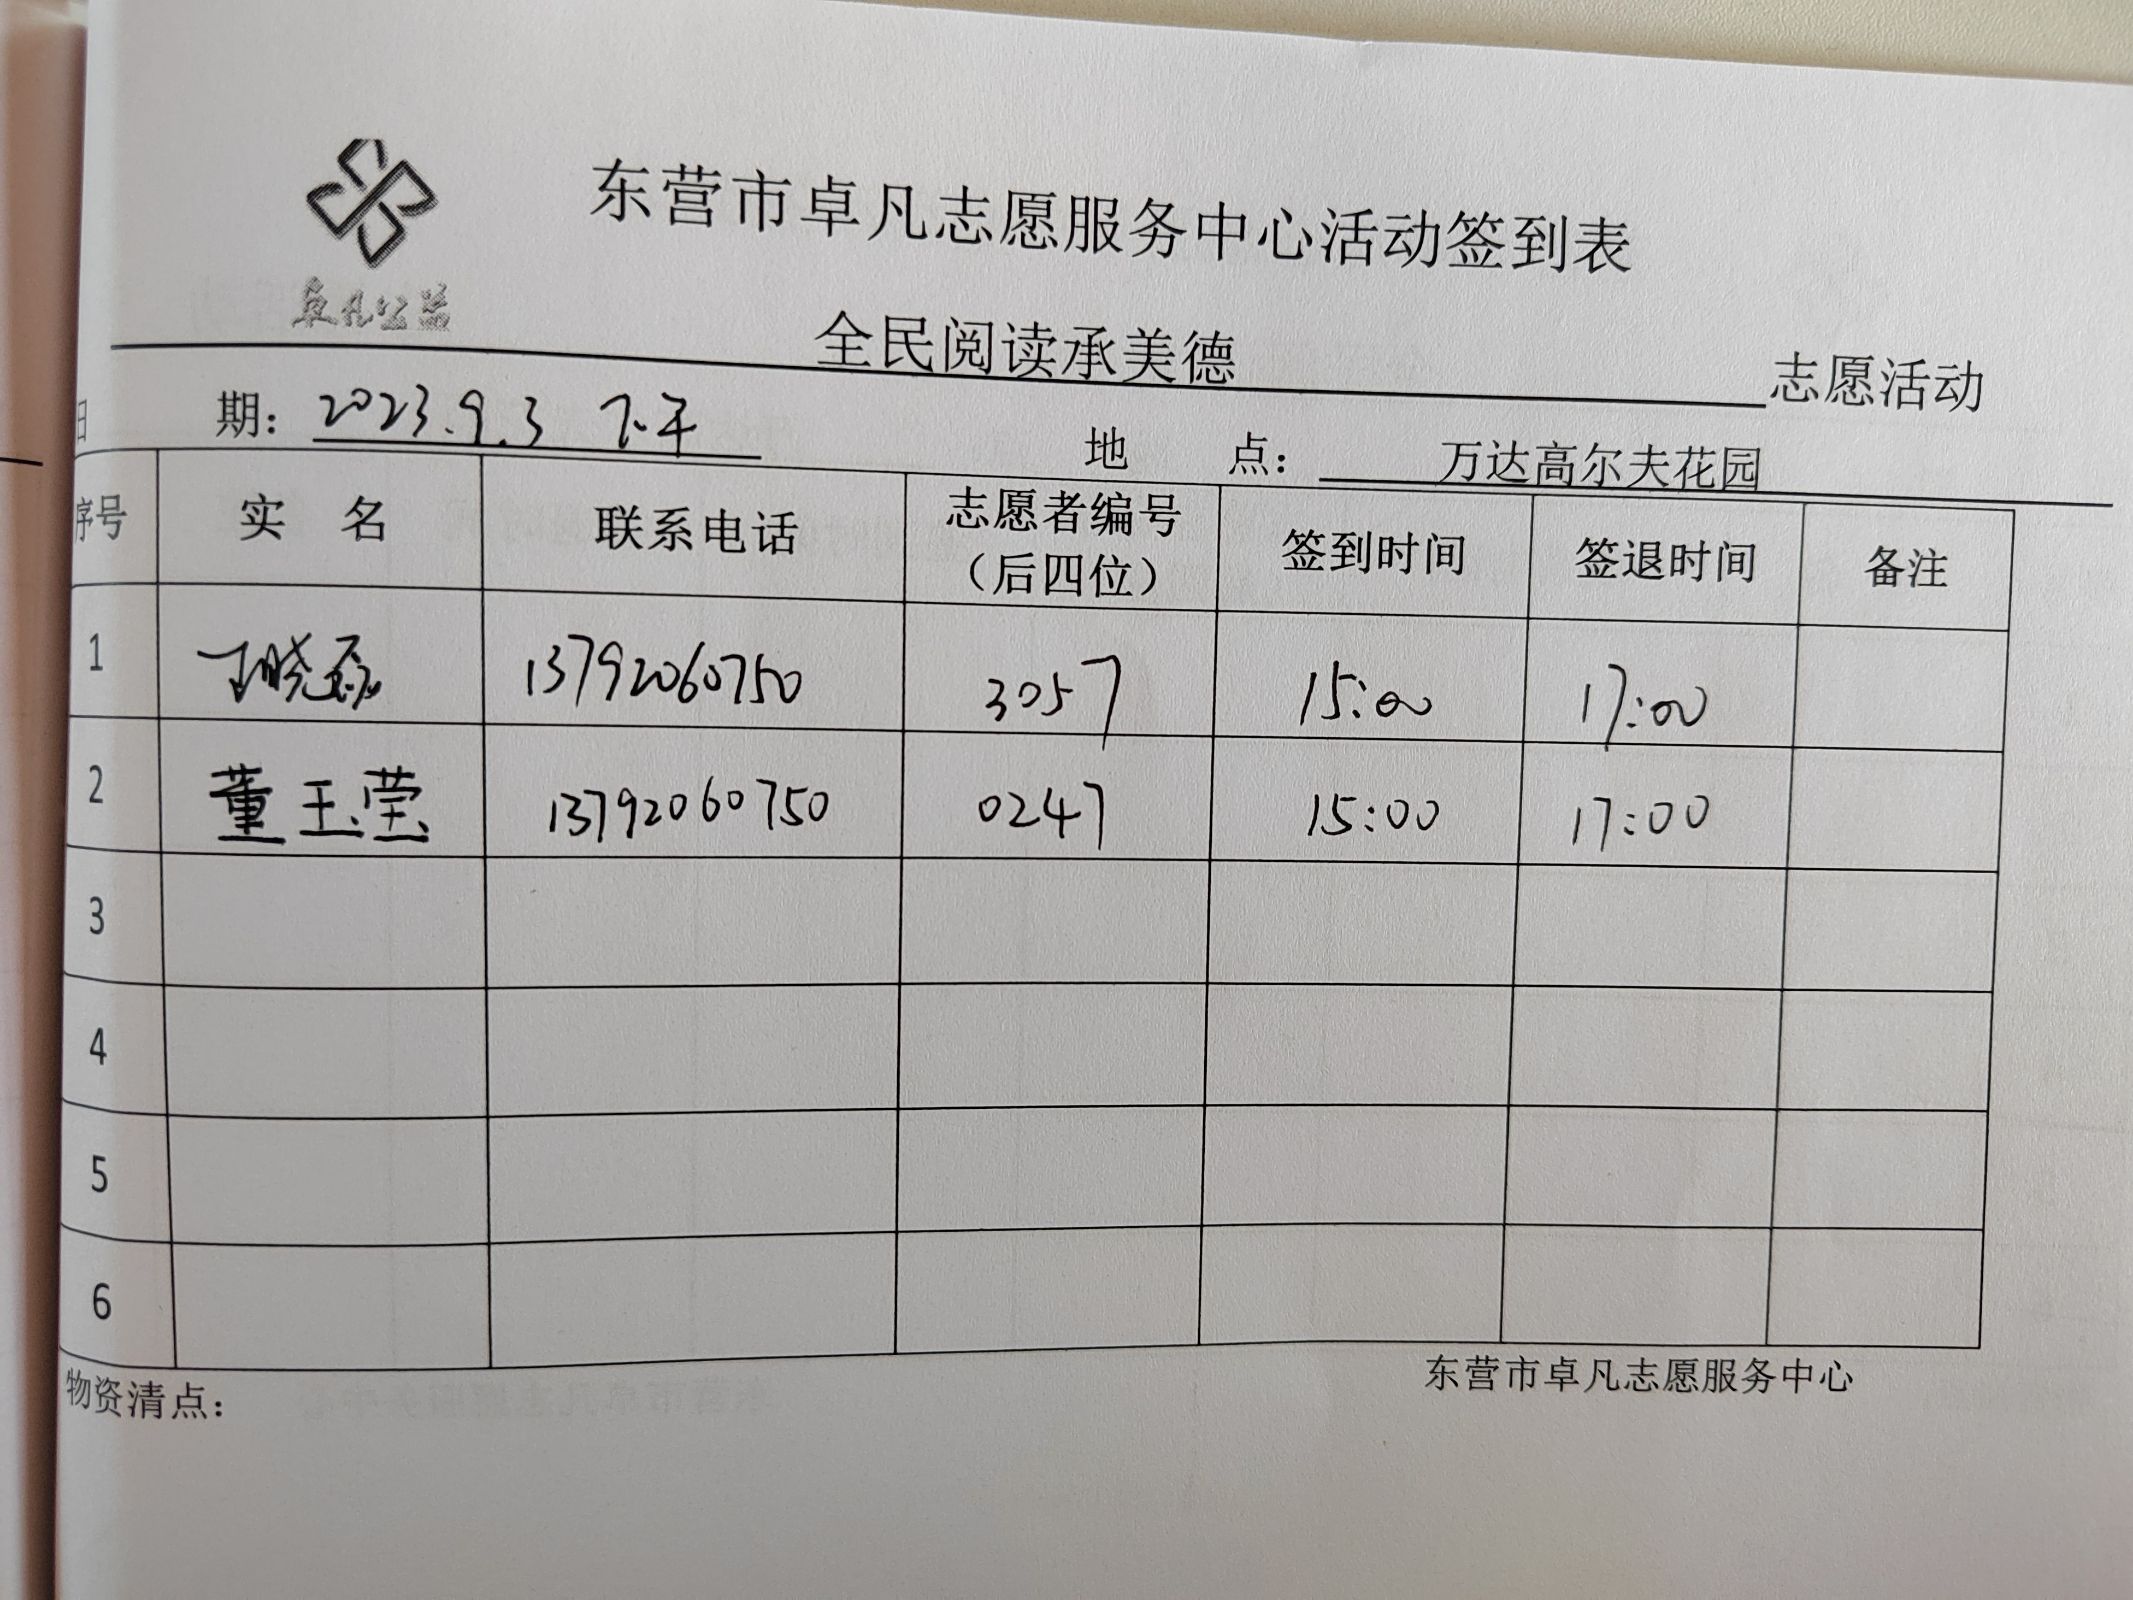 卓凡公益
东营市卓凡志愿服务中心活动签到表
全民阅读承美德 志愿活动
日 期：2023.9.3 下午 地 点：万达高尔夫花园
序号 实 名 联系电话 志愿者编号（后四位） 签到时间 签退时间 备注
1 丁晓磊 13792060750 3057 15:00 17:00
2 董玉莹 13792060750 0247 15:00 17:00
3
4
5
6
物资清点： 东营市卓凡志愿服务中心